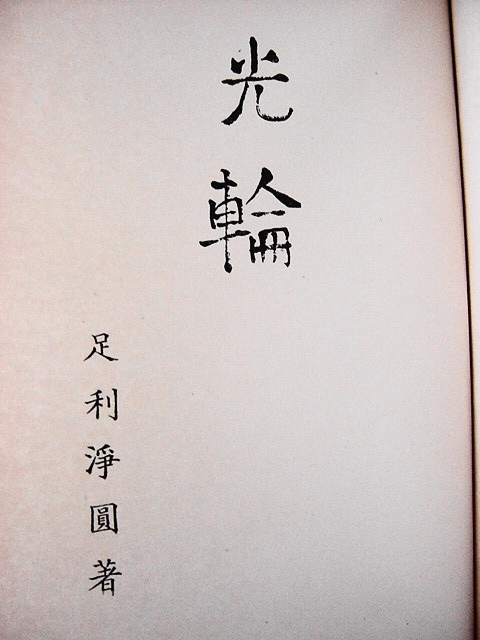 光輪
足利淨圓著